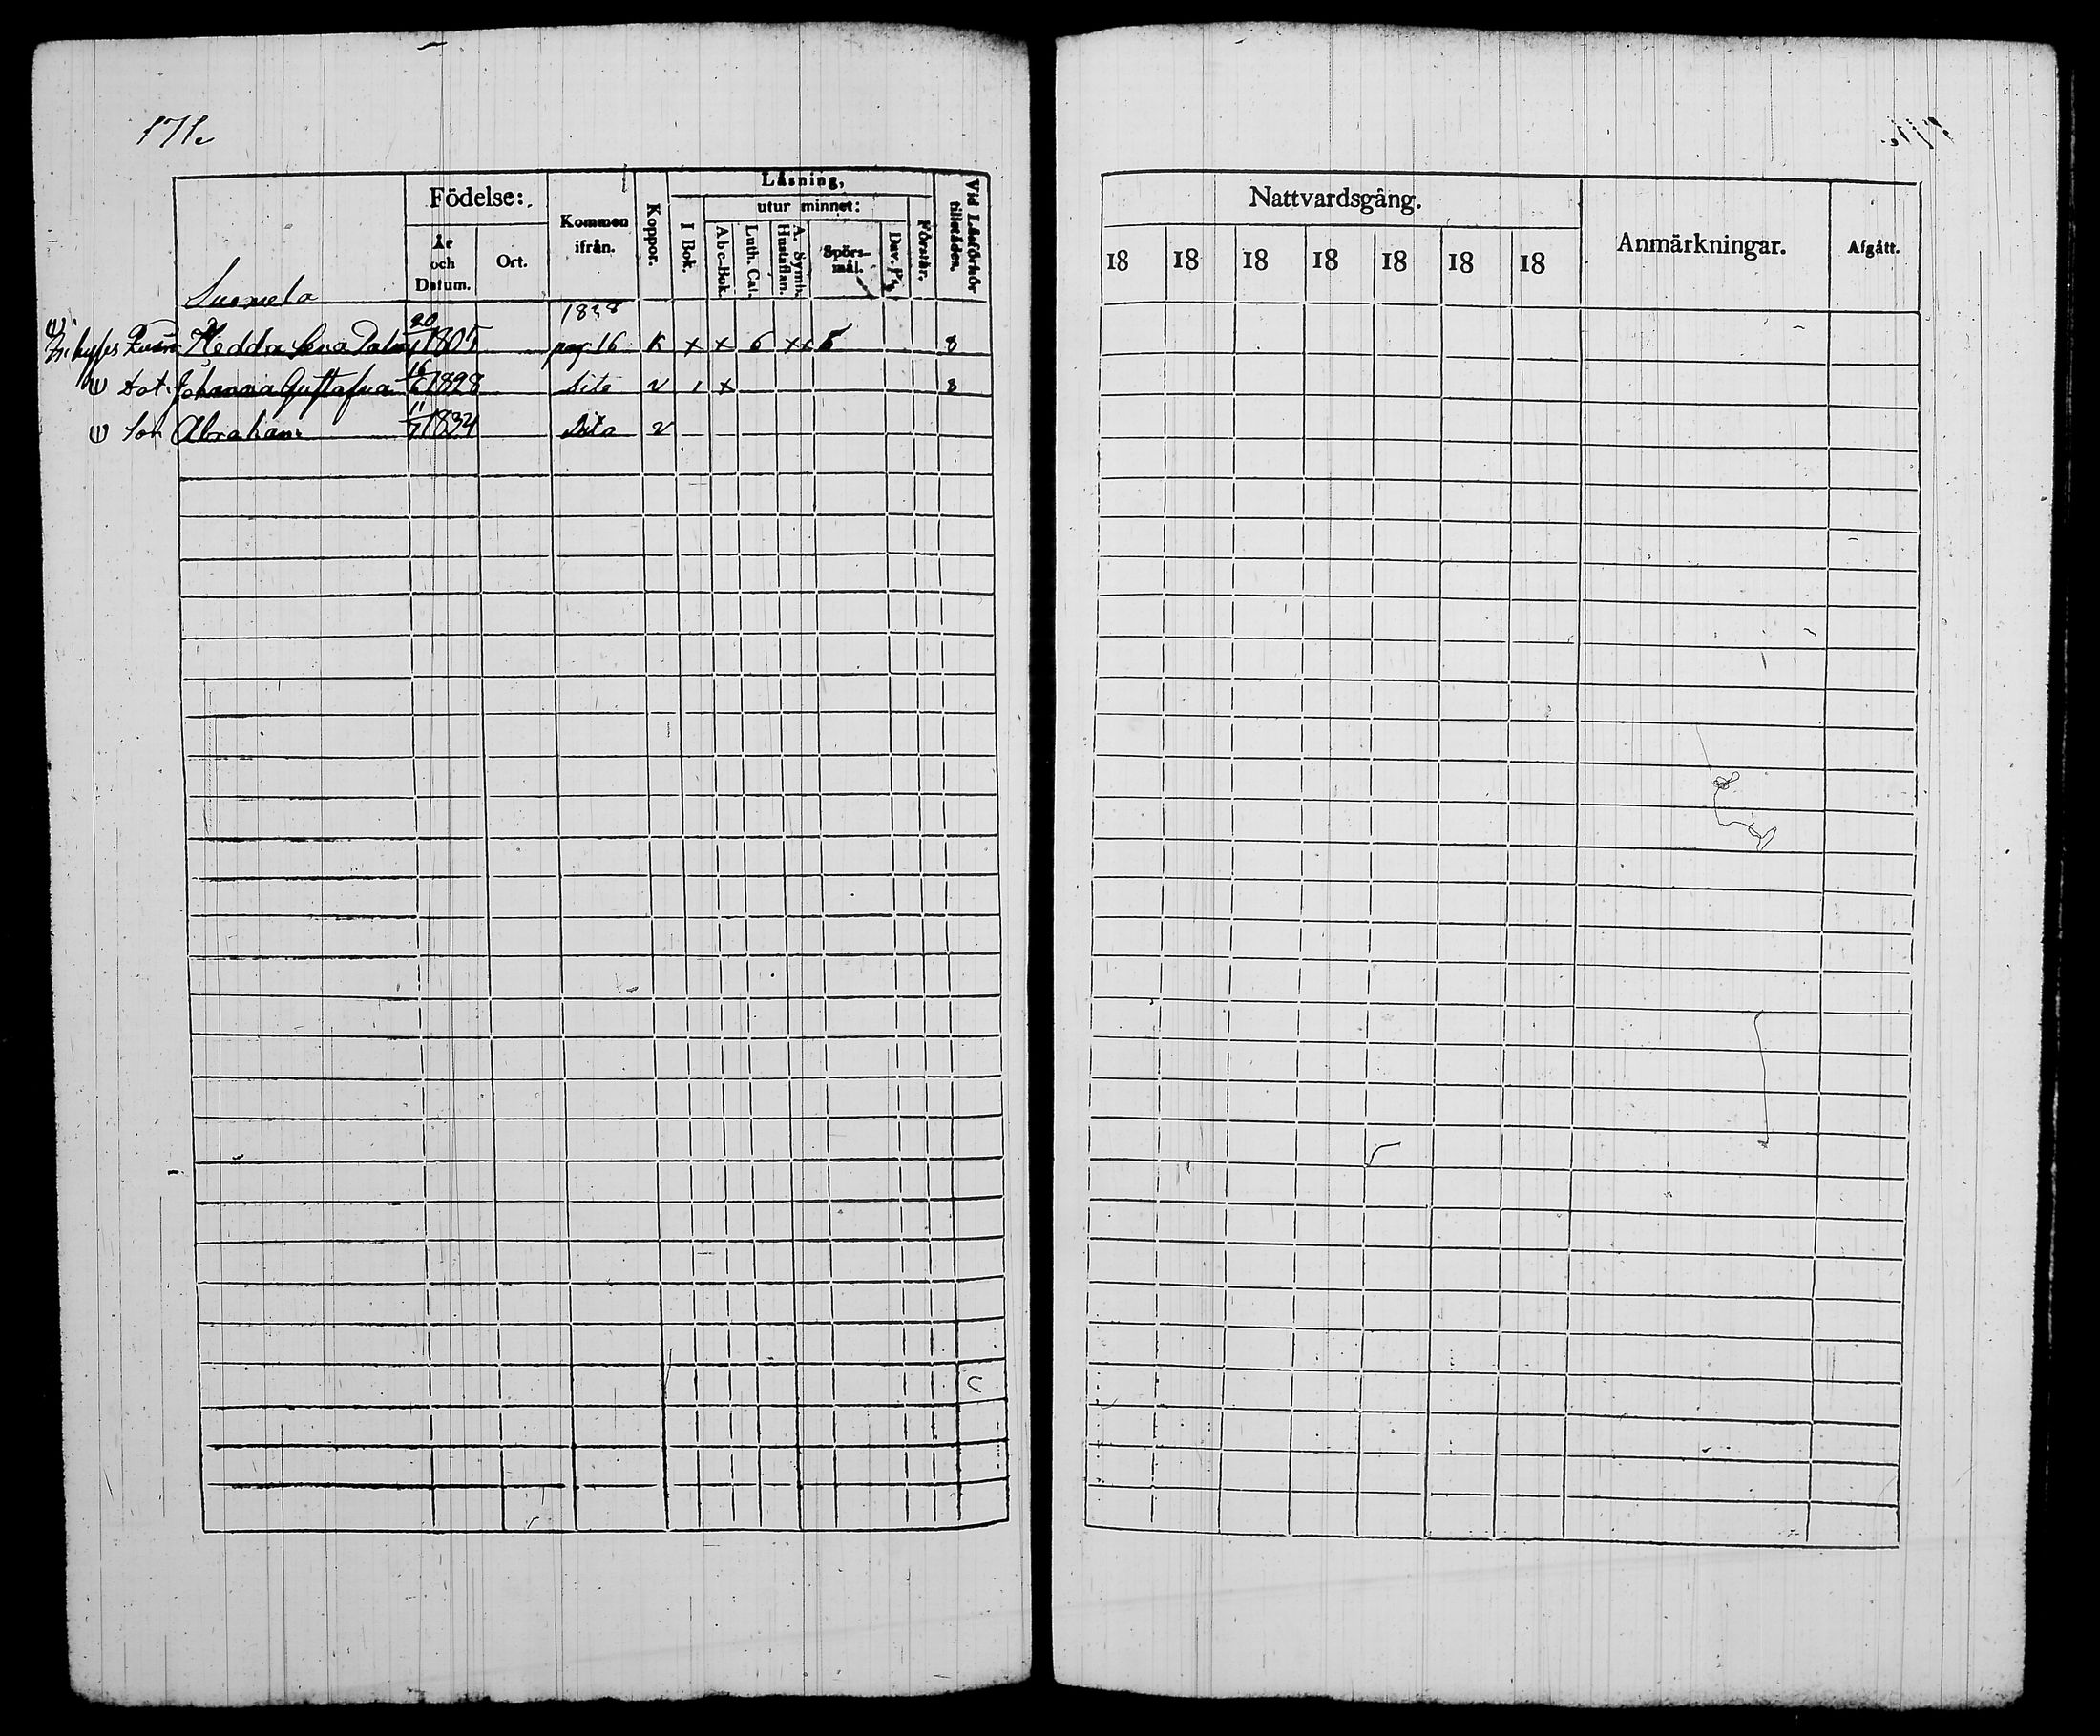 171e
Födelse:
År och Datum.
Ort.
Kommen ifrån.
Koppor.
Läsning,
I Bok.
utur minnet:
Abc-Bok.
Luth. Cat.
A. Symb. Hustaflan.
Spörs-mål.
Dav. Ps.
Förstår.
Vid Läsförhör tillstädes.
Suomela
1838
Hedda Lena 20 1805 pag 16 K x x 6 xx 5 8
Dot. Johanna Gustafva 16 1828 Dito v 1 x 8
Son Abraham 11/7 1834 Dito v
Nattvardsgång.
18 18 18 18 18 18 18
Anmärkningar.
Afgått.